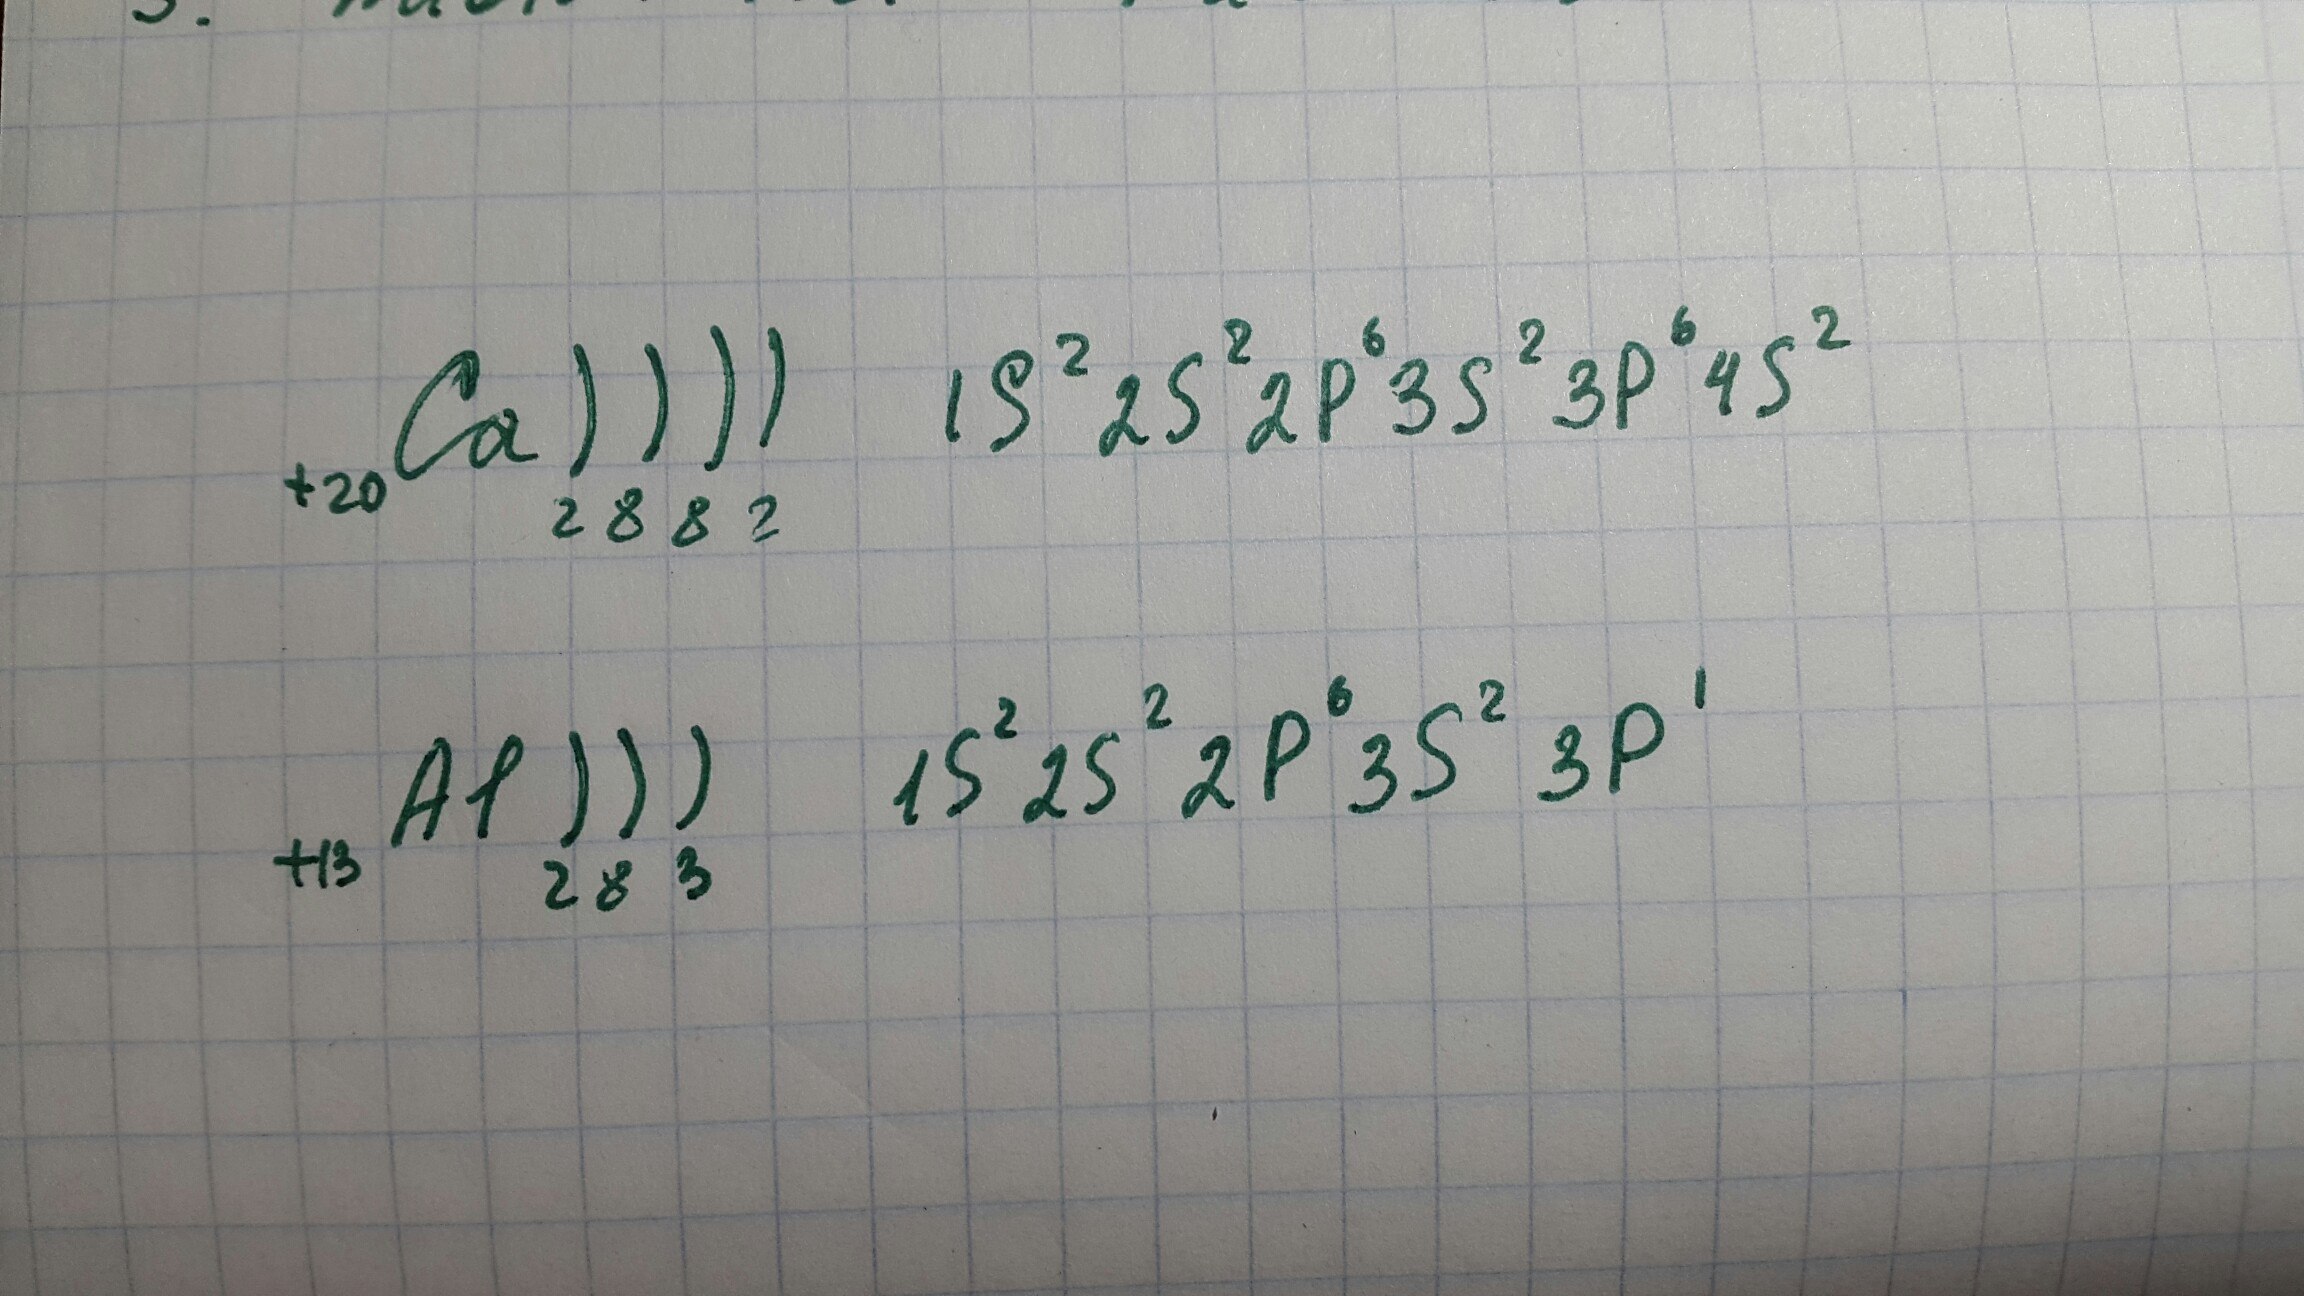 3.
+20 Ca ) ) ) ) 1S² 2S² 2P⁶ 3S² 3P⁶ 4S²
2 8 8 2
+13 Al ) ) ) 1S² 2S² 2P⁶ 3S² 3P¹
2 8 3